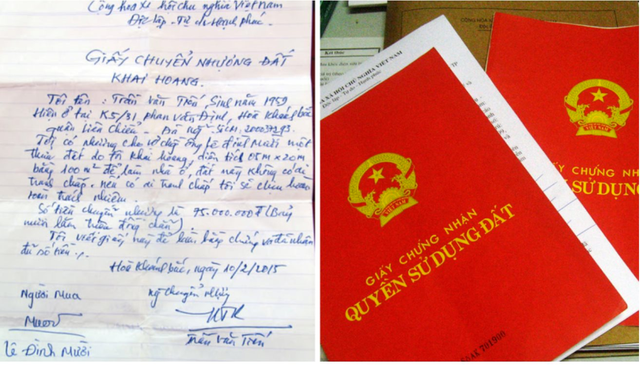 Cộng hòa xã hội chủ nghĩa Việt Nam
Độc lập - Tự do - Hạnh phúc
GIẤY CHUYỂN NHƯỢNG ĐẤT
KHAI HOANG
Tôi tên : Trần Văn Tiến, Sinh năm 1959
Hiện ở tại K5/31, phan văn Định, Hoà Khánh bắc
quận Liên Chiểu
Tôi có nhường cho vợ chồng Lê Đình Mười một
thửa đất do tôi khai hoang, diện tích 05M x 20M
bằng 100m² để làm nhà ở, đất này không có ai
tranh chấp. nếu có ai tranh chấp tôi sẽ chịu hoàn
toàn trách nhiệm.
Số tiền chuyển nhượng là 75.000.000đ (Bảy
mươi lăm triệu đồng chẵn)
Tôi viết giấy này để làm bằng chứng và đã nhận
đủ số tiền
Hoà Khánh bắc, ngày 10/2/2015
Người Mua
Mười
Lê Đình Mười
GIẤY CHỨNG NHẬN
QUYỀN SỬ DỤNG ĐẤT
VIỆT NAM
GIẤY CHỨNG
QUYỀN SỬ DỤNG